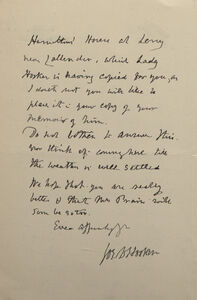 Hamilton's House at Leny
near Callander, which Lady
Hooker is having copied for you, as
I doubt not you will like to
place it in your copy of your
Memoir of him.
Do not bother to answer this.
nor think of coming here till
the weather is well settled
We hope that you are really
better & that Mrs Prain will
soon be so too.
Ever affectly yrs
Jos. D. Hooker